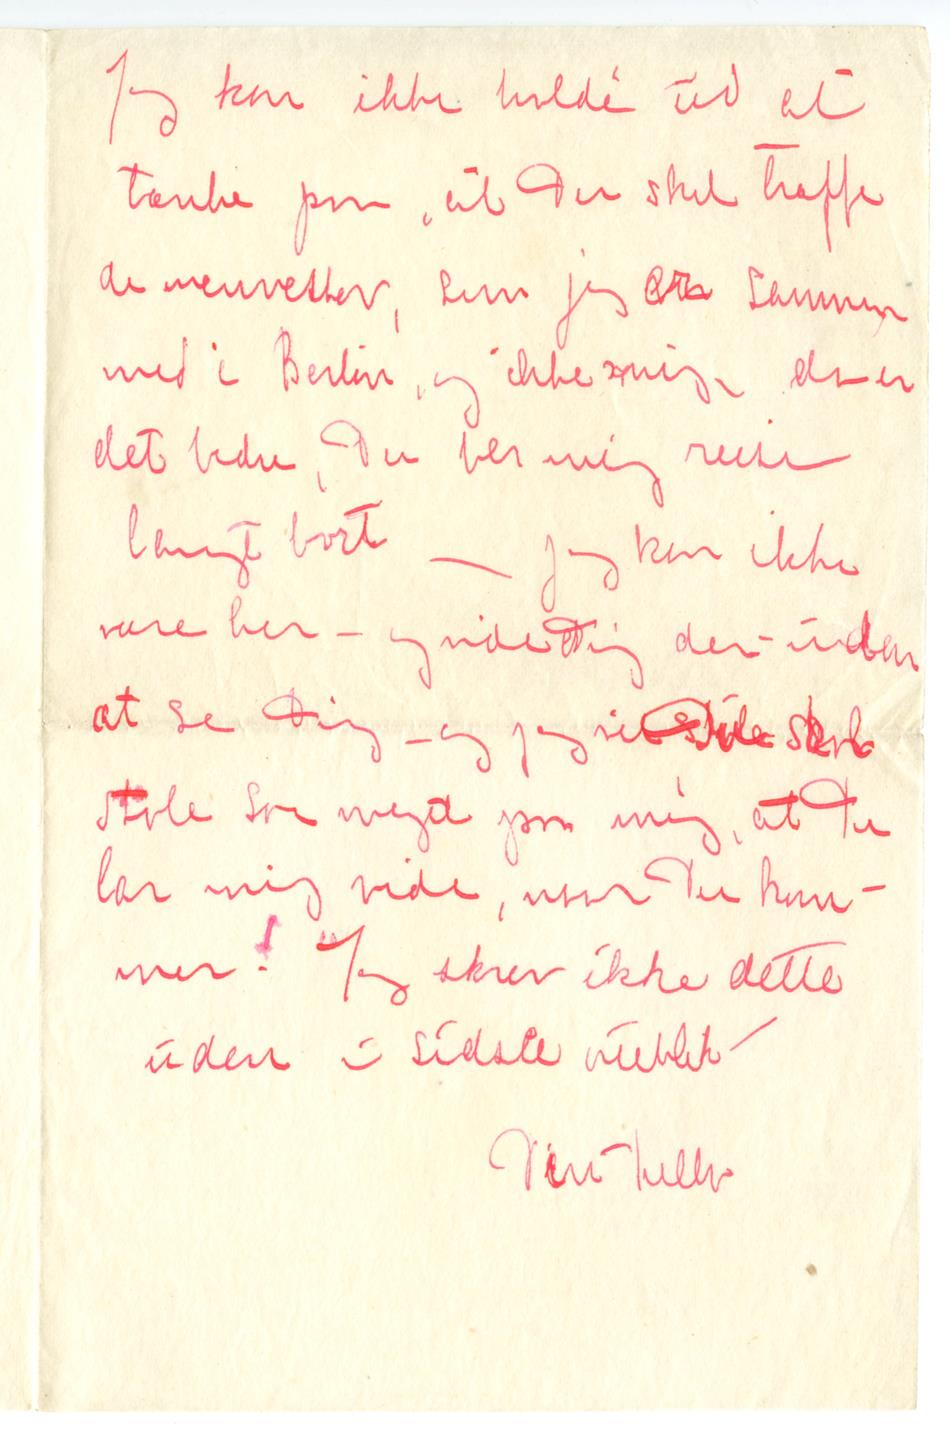 Jeg kan ikke holde ud at
tænke paa, at Du skal træffe
de mennesker, som jeg er sammen
med i Berlin, og ikke mig, da er
det bedre, Du ber mig reise
langt bort — jeg kan ikke
være her – og vide Dig der – uden
at se Dig – og jeg vil stole skal
stole saa meget paa mig, at Du
lar mig vide, naar Du kom-
mer! Jeg skrev ikke dette
uden i sidste
Din